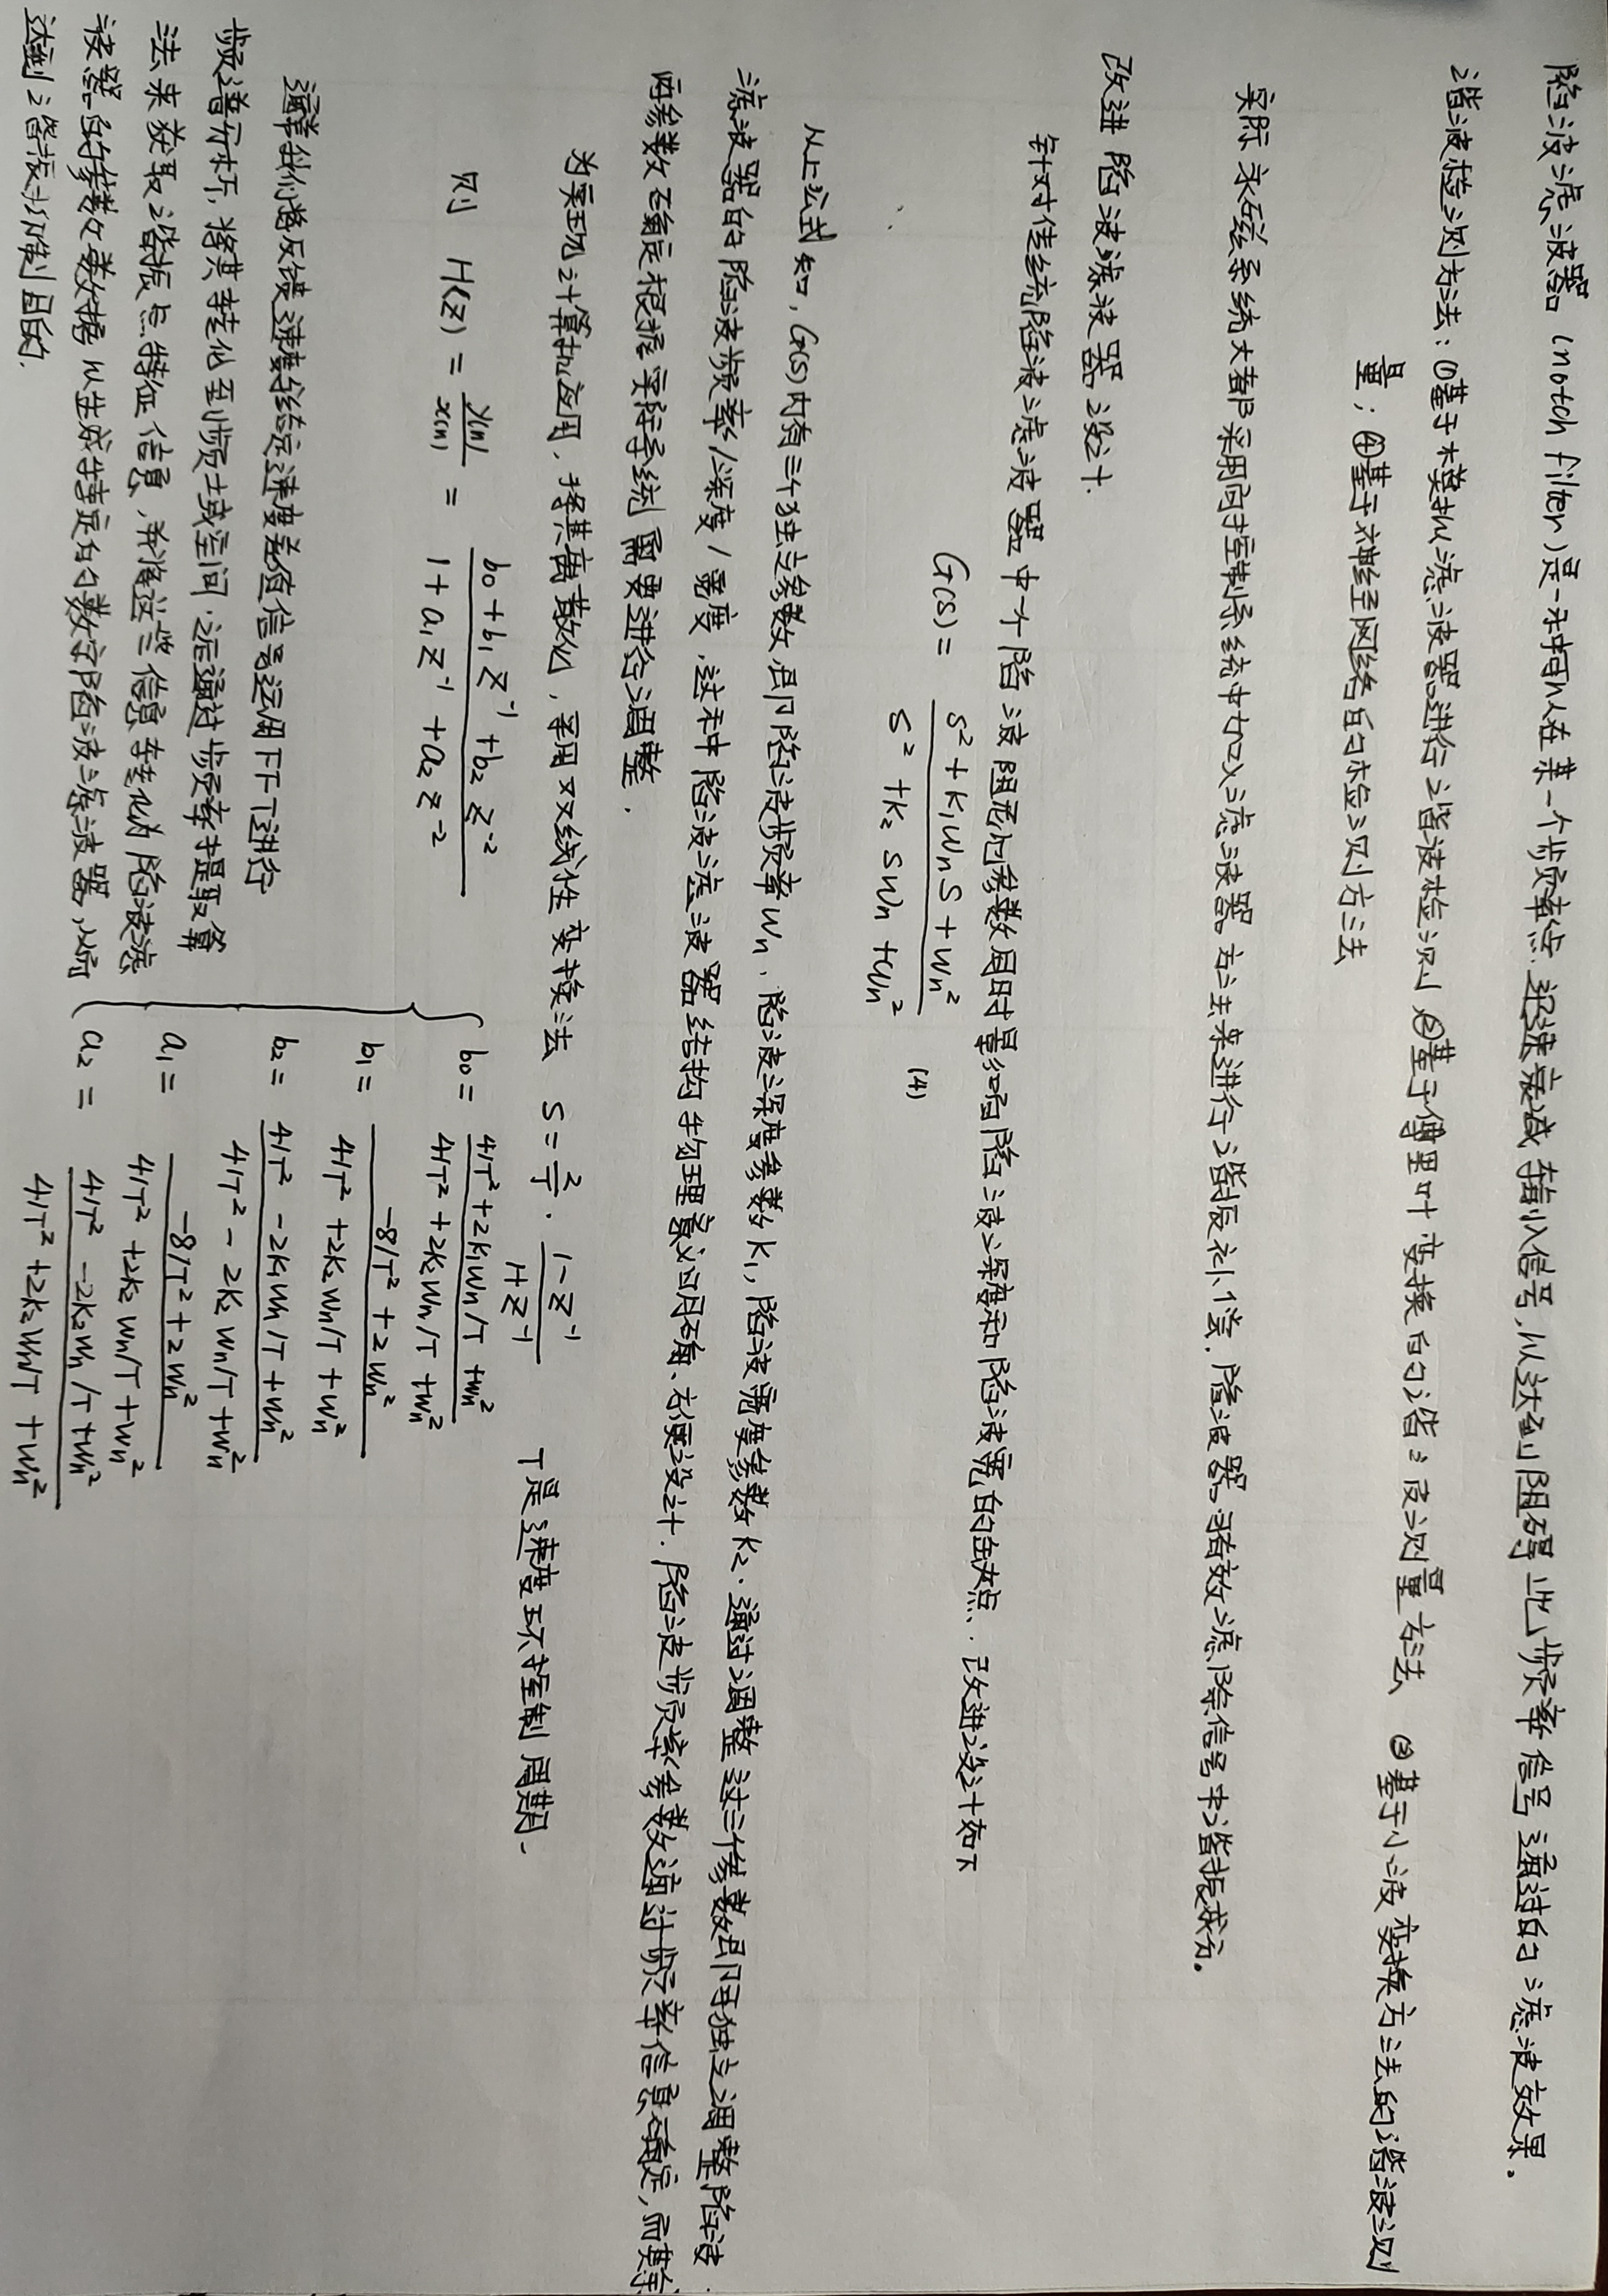 陷波滤波器 (notch filter) 是一种可以在某一个频率点迅速衰减输入信号,以达到阻碍此频率信号通过的滤波效果。
谐波检测方法:①基于模拟滤波器进行谐波检测 ②基于傅里叶变换的谐波测量方法 ③基于小波变换方法的谐波测
量;④基于神经网络的检测方法
实际永磁系统大都采用向控制系统中加入滤波器方法来进行谐振补偿.陷波器可有效滤除信号中谐振成分。
改进陷波滤波器设计.
针对传统陷波滤波器中一个陷波阻尼参数同时影响陷波深度和陷波宽的缺点.改进设计如下
G(s) = \frac{s² + k₁wₙs + wₙ²}{s² + k₂swₙ + wₙ²} (4)
从上公式知, G(s)内有三个独立参数,即陷波频率wₙ、陷波深度参数k₁,陷波宽度参数k₂.通过调整这三个参数即可独立调整陷波
滤波器的陷波频率/深度/宽度,这种陷波滤波器结构物理意义明确、方便设计.陷波频率参数通过频率信息确定,而其余
两参数确定根据实际系统需要进行调整.
为实现计算机应用,将其离散化,采用双线性变换法 S = \frac{2}{T} · \frac{1-z⁻¹}{1+z⁻¹} T是速度环控制周期.
则 H(z) = \frac{y(n)}{x(n)} = \frac{b₀ + b₁z⁻¹ + b₂z⁻²}{1 + a₁z⁻¹ + a₂z⁻²}
b₀ = \frac{4/T² + 2k₁wₙ/T + wₙ²}{4/T² + 2k₂wₙ/T + wₙ²}
b₁ = \frac{-8/T² + 2wₙ²}{4/T² + 2k₂wₙ/T + wₙ²}
b₂ = \frac{4/T² - 2k₁wₙ/T + wₙ²}{4/T² - 2k₂wₙ/T + wₙ²}
a₁ = \frac{-8/T² + 2wₙ²}{4/T² + 2k₂wₙ/T + wₙ²}
a₂ = \frac{4/T² - 2k₂wₙ/T + wₙ²}{4/T² + 2k₂wₙ/T + wₙ²}
通常我们将反馈速度与给定速度差值信号运用FFT进行
频谱分析,将其转化到频域空间.运通过频率提取算
法来获取谐振点特征信息,并将这些信息转化为陷波滤
波器的参数数据以生成特定的数字陷波滤波器,从而
达到谐振抑制目的.